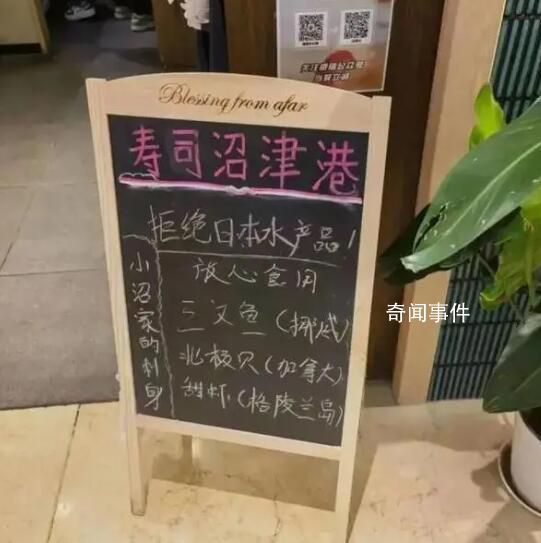 关注微信公众号
Blessing from afar
寿司沼津港
拒绝日本水产品!
放心食用
小沼家的刺身
三文鱼(挪威)
北极贝(加拿大)
甜虾(格陵兰岛)
奇闻事件